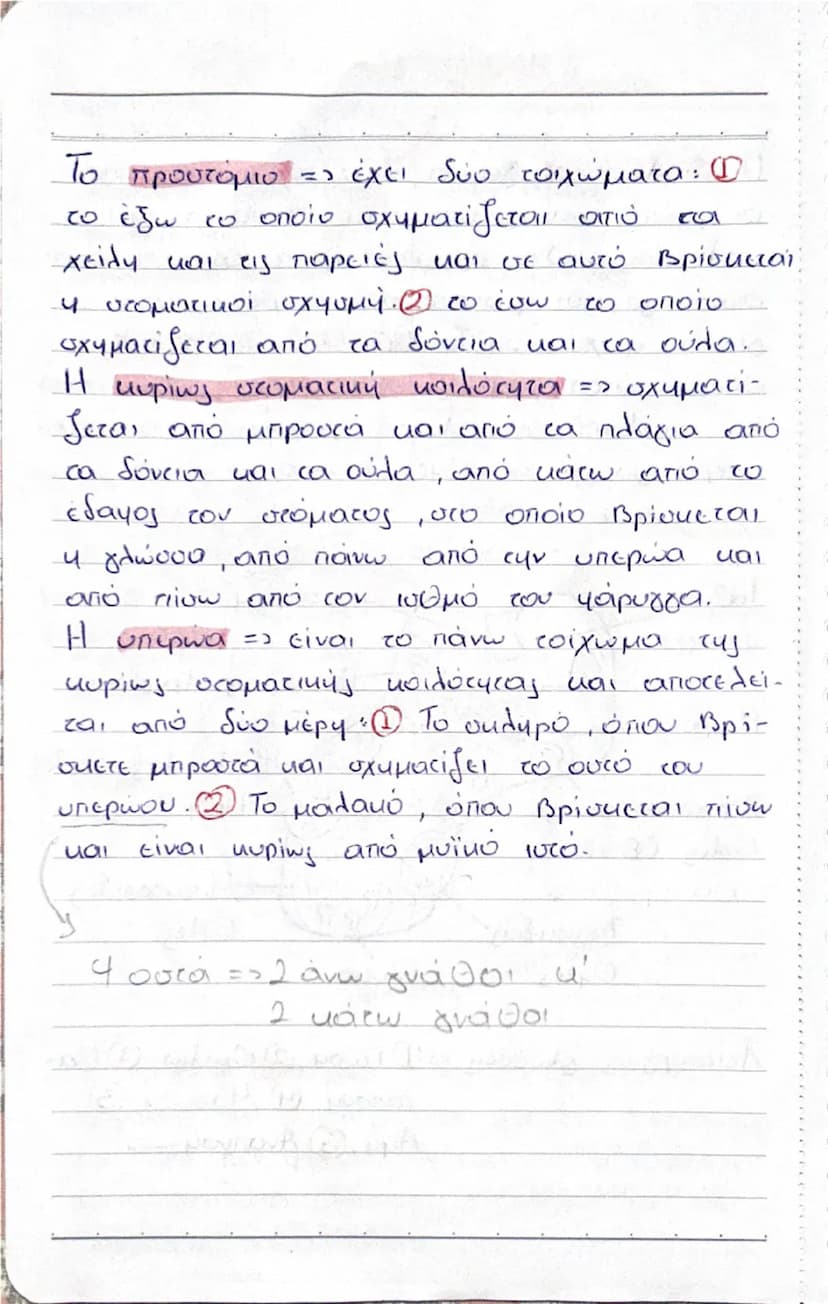 Το προστόμιο => έχει δύο τοιχώματα: ①
το έξω το οποίο σχηματίζεται από τα
χείλη και τις παρειές και σε αυτό βρίσκεται
η στοματική σχησμή. ② το έσω το οποίο
σχηματίζεται από τα δόντια και τα ούλα.
Η κυρίως στοματική κοιλότητα => σχηματί-
ζεται από μπροστά και από τα πλάγια από
τα δόντια και τα ούλα, από κάτω από το
έδαφος του στόματος, στο οποίο βρίσκεται
η γλώσσα, από πάνω από την υπερώα και
από πίσω από τον ισθμό του φάρυγγα.
Η υπερώα => είναι το πάνω τοίχωμα της
κυρίως στοματικής κοιλότητας και αποτελεί-
ται από δύο μέρη: ① Το σκληρό, όπου βρί-
σκετε μπροστά και σχηματίζει το οστό του
υπερωου. ② Το μαλακό, όπου βρίσκεται πίσω
και είναι κυρίως από μυϊκό ιστό.
4 οστά => 2 άνω γνάθοι κ'
2 κάτω γνάθοι